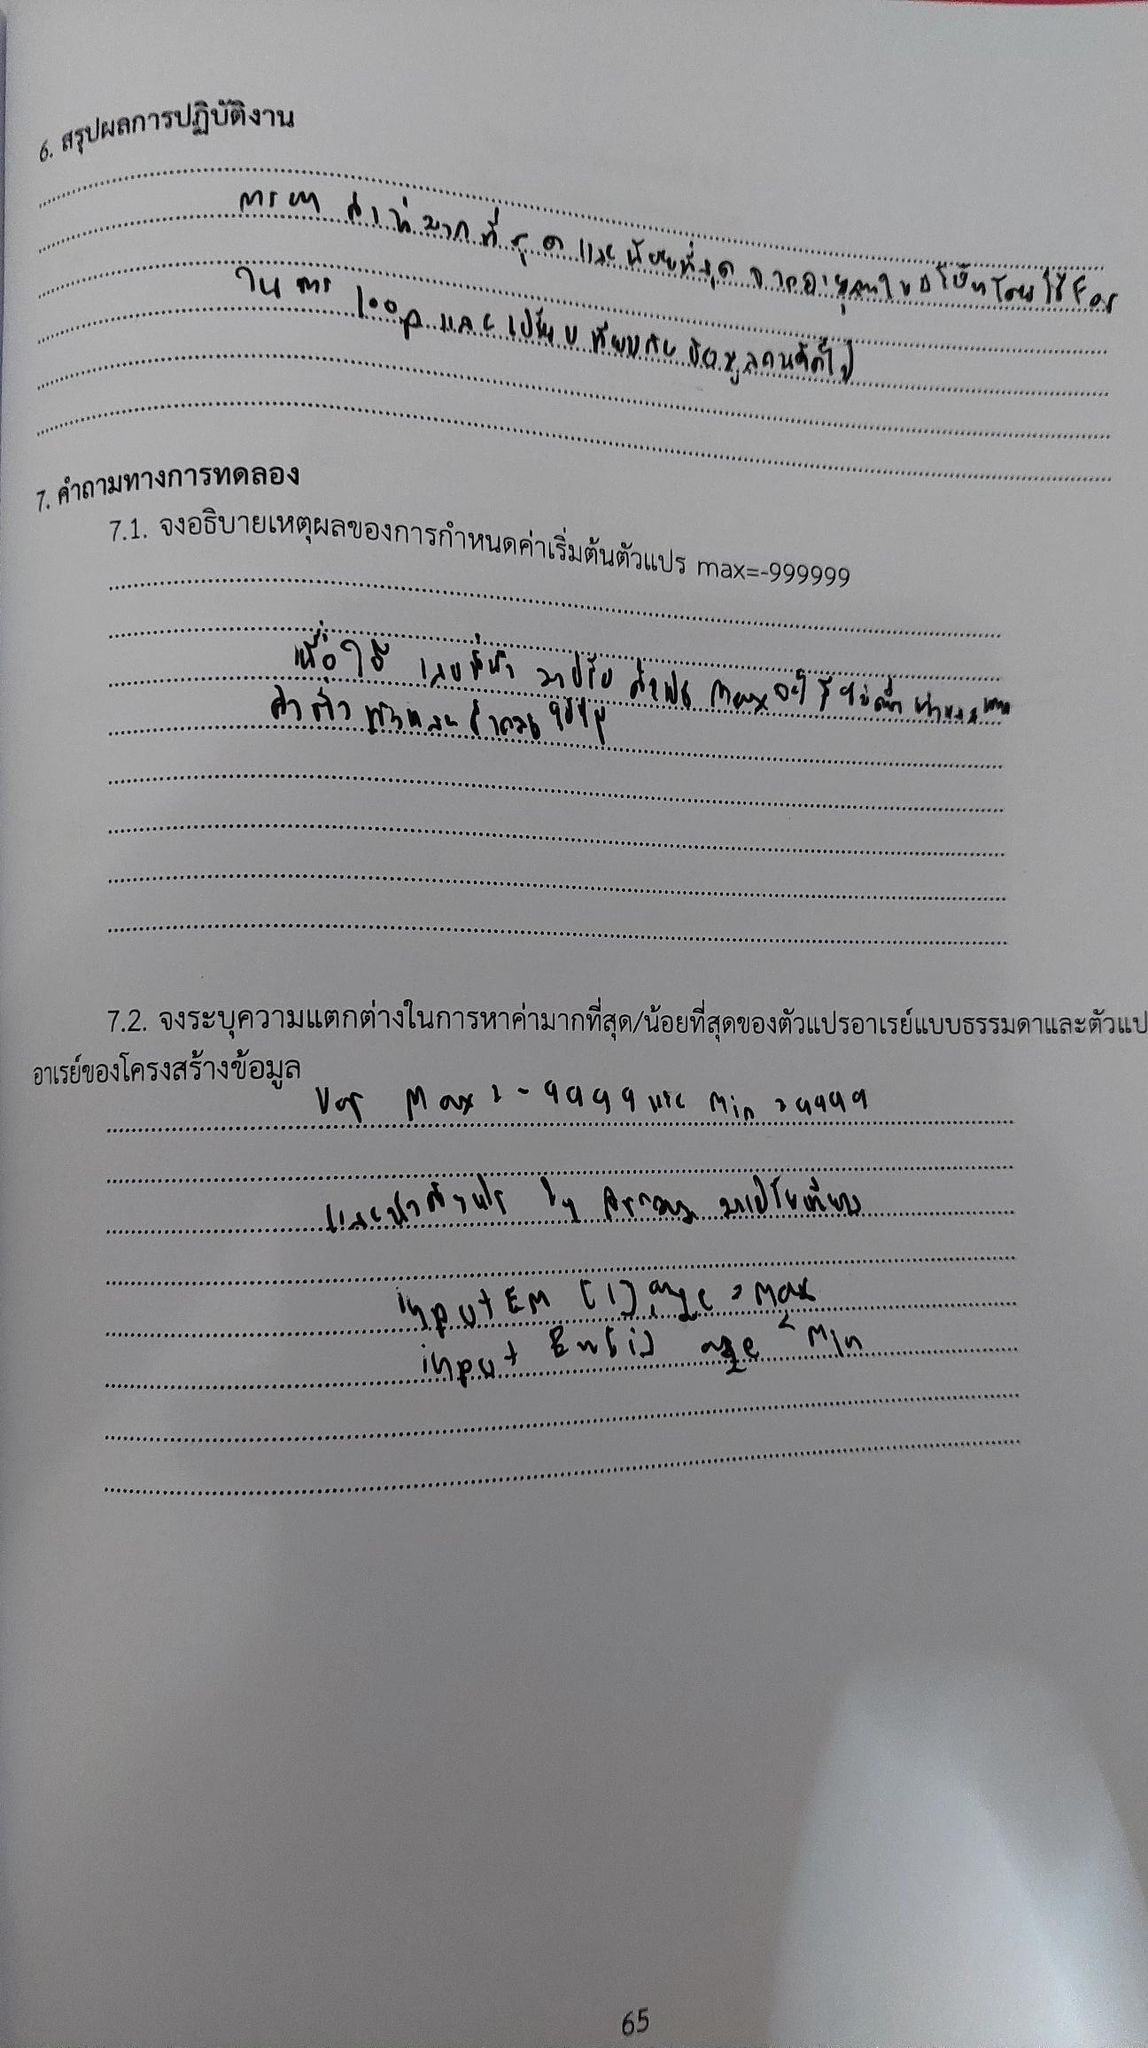 6. สรุปผลการปฏิบัติงาน
การหา ค่าที่มากที่สุด และน้อยที่สุด โดยใช้ For
ในการ loop และเปรียบเทียบกับข้อมูลคนถัดไป
7. คำถามทางการทดลอง
7.1. จงอธิบายเหตุผลของการกำหนดค่าเริ่มต้นตัวแปร max=-999999
เพื่อให้ เลขที่นำ max
7.2. จงระบุความแตกต่างในการหาค่ามากที่สุด/น้อยที่สุดของตัวแปรอาเรย์แบบธรรมดาและตัวแป
อาเรย์ของโครงสร้างข้อมูล
Max = -9999 และ Min = 9999
และนำตัวแปร ใน Array มาเปรียบเทียบ
input Em [i] age > max
input Em [i] age < Min
65